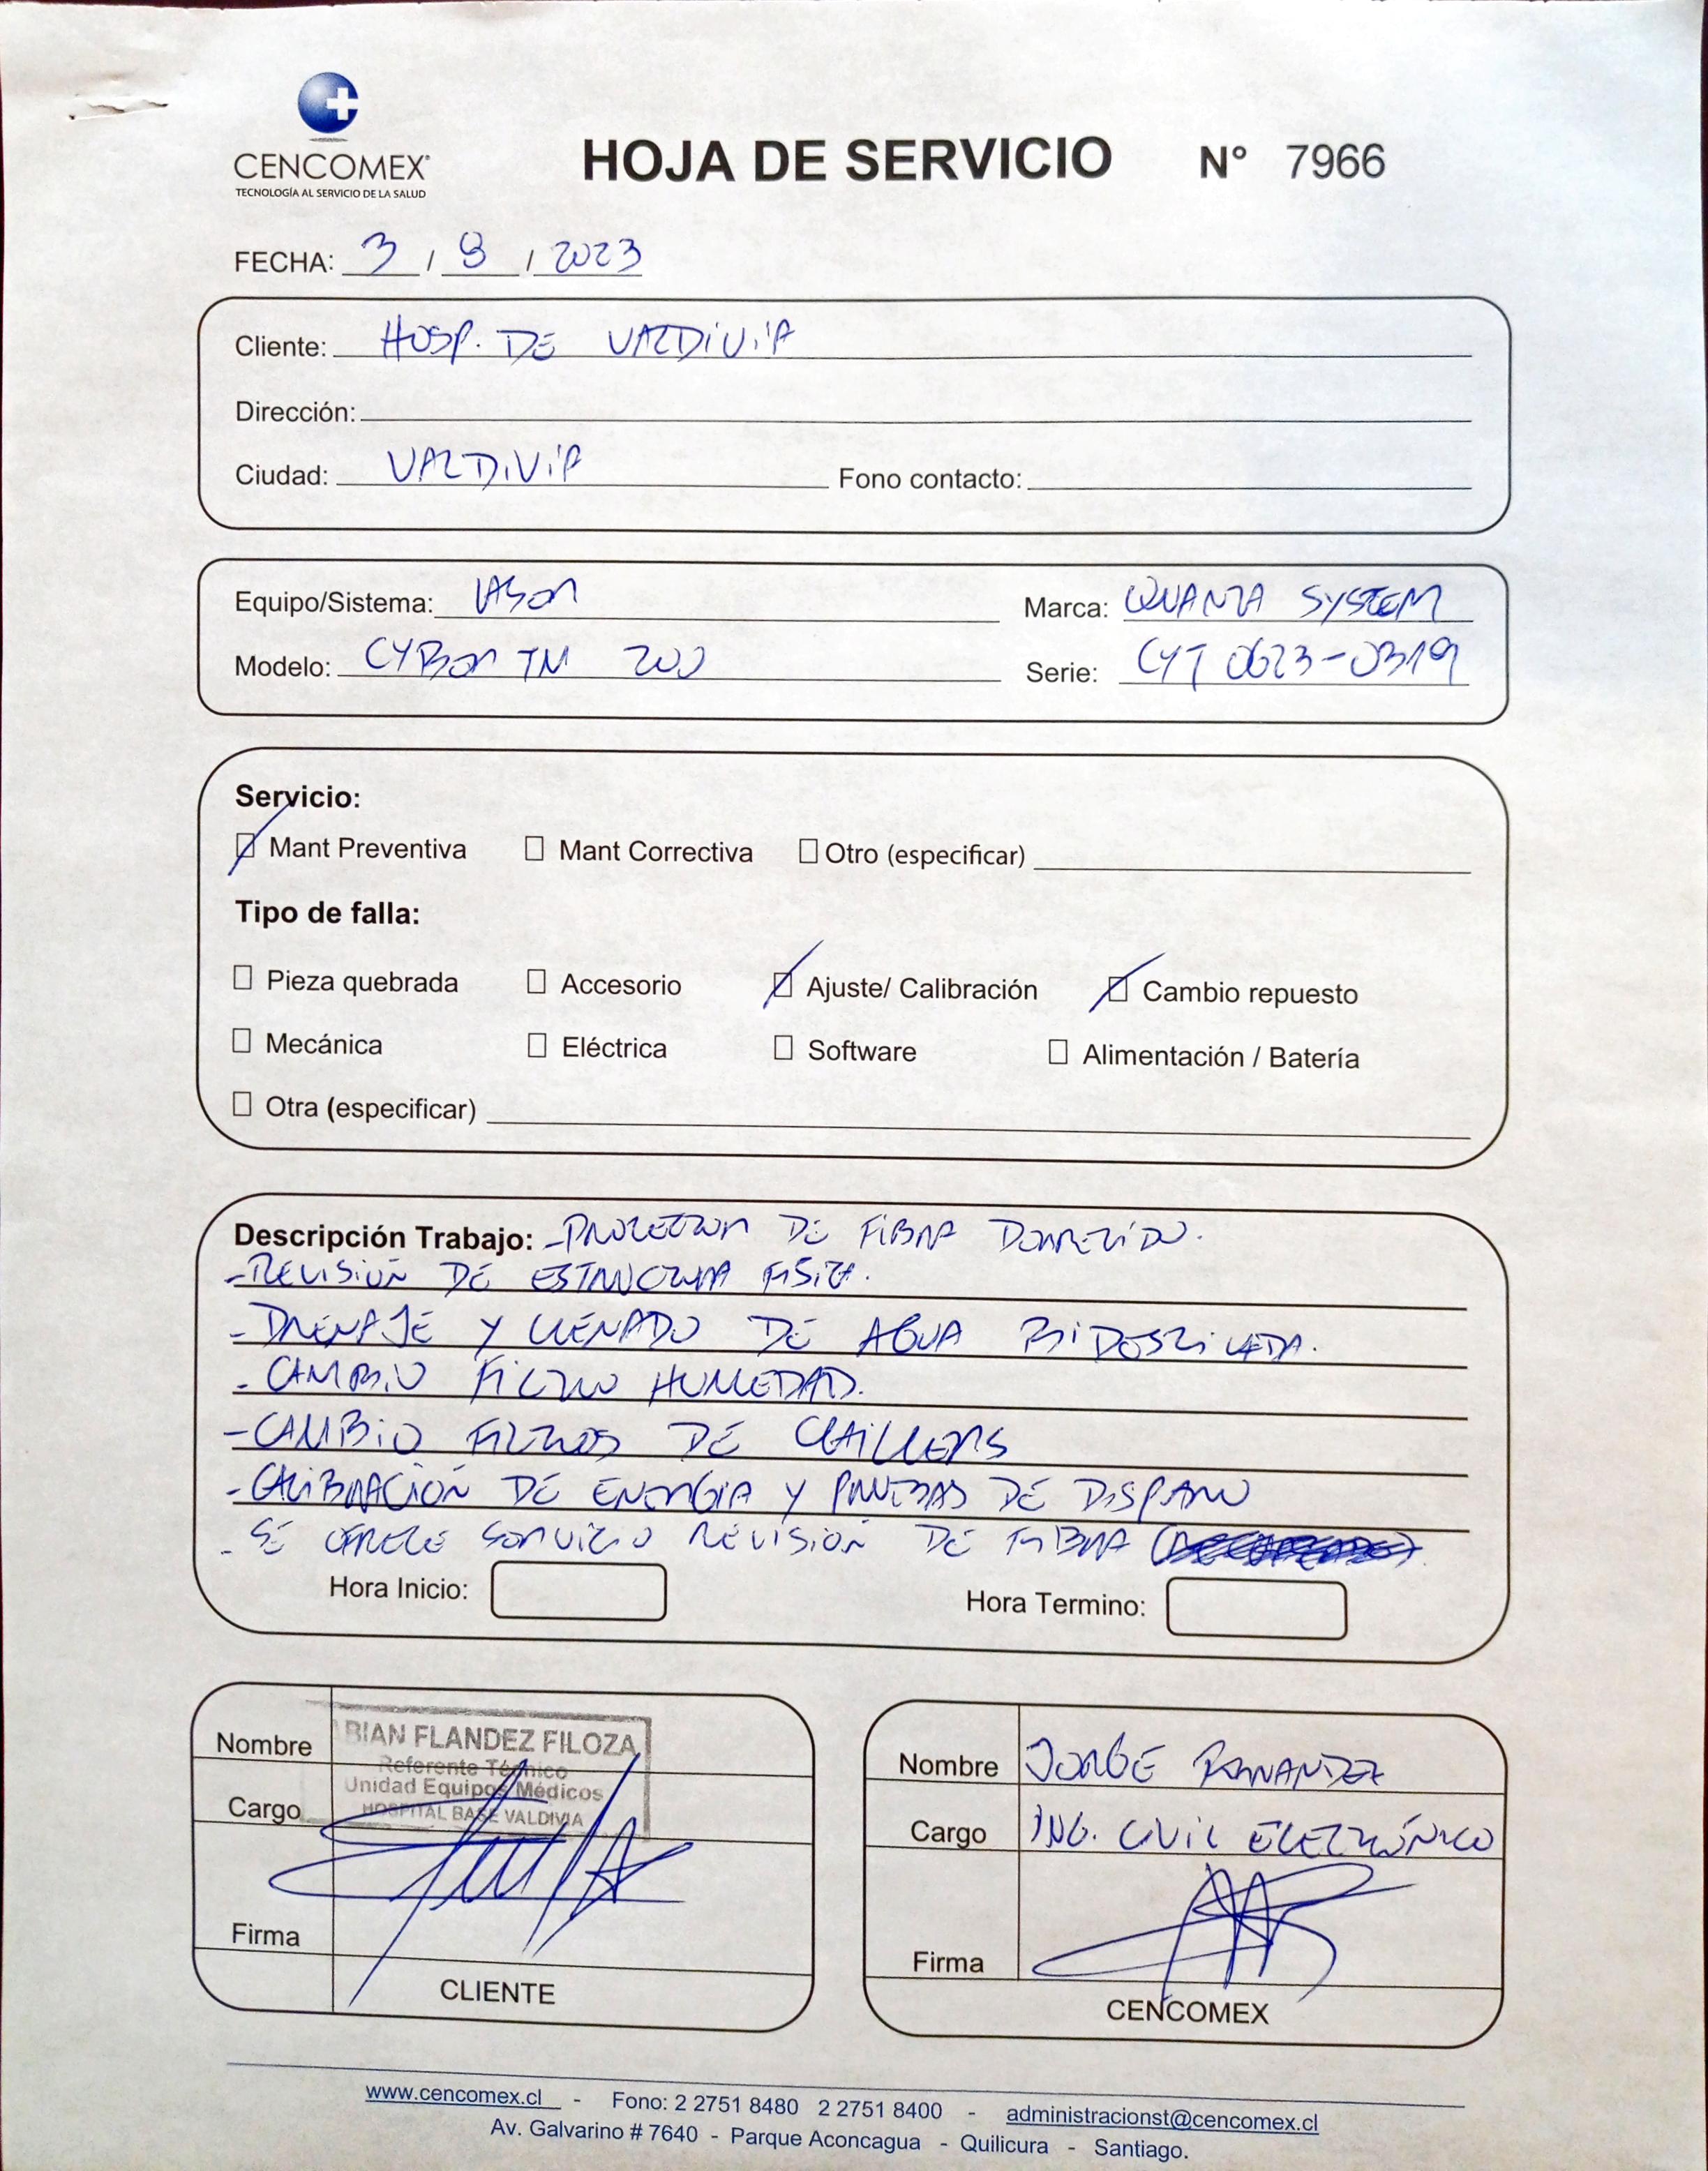 CENCOMEX®
TECNOLOGÍA AL SERVICIO DE LA SALUD
HOJA DE SERVICIO N° 7966
FECHA: 3 / 8 / 2023
Cliente: HOSP. DE VALDIVIA
Dirección:
Ciudad: VALDIVIA Fono contacto:
Equipo/Sistema: LASER Marca: QUANTA SYSTEM
Modelo: CYBER TM 200 Serie: CYT 0623-0319
Servicio:
Mant Preventiva Mant Correctiva Otro (especificar)
Tipo de falla:
Pieza quebrada Accesorio Ajuste/ Calibración Cambio repuesto
Mecánica Eléctrica Software Alimentación / Batería
Otra (especificar)
Descripción Trabajo: - PROTECTOR DE FIBRA DERRETIDO.
- REVISIÓN DE ESTRUCTURA FISICA.
- DRENAJE Y LLENADO DE AGUA BIDESTILADA.
- CAMBIO FILTRO HUMEDAD.
- CAMBIO FILTROS DE CHILLERS
- CALIBRACIÓN DE ENERGIA Y PRUEBAS DE DISPARO
- SE OFRECE SERVICIO REVISIÓN DE FIBRA
Hora Inicio: Hora Termino:
Nombre BIAN FLANDEZ FILOZA
Referente Técnico
Unidad Equipos Médicos
Cargo HOSPITAL BASE VALDIVIA
Firma
CLIENTE
Nombre JORGE FERNANDEZ
Cargo ING. CIVIL ELECTRÓNICO
Firma
CENCOMEX
www.cencomex.cl - Fono: 2 2751 8480 2 2751 8400 - administracionst@cencomex.cl
Av. Galvarino # 7640 - Parque Aconcagua - Quilicura - Santiago.